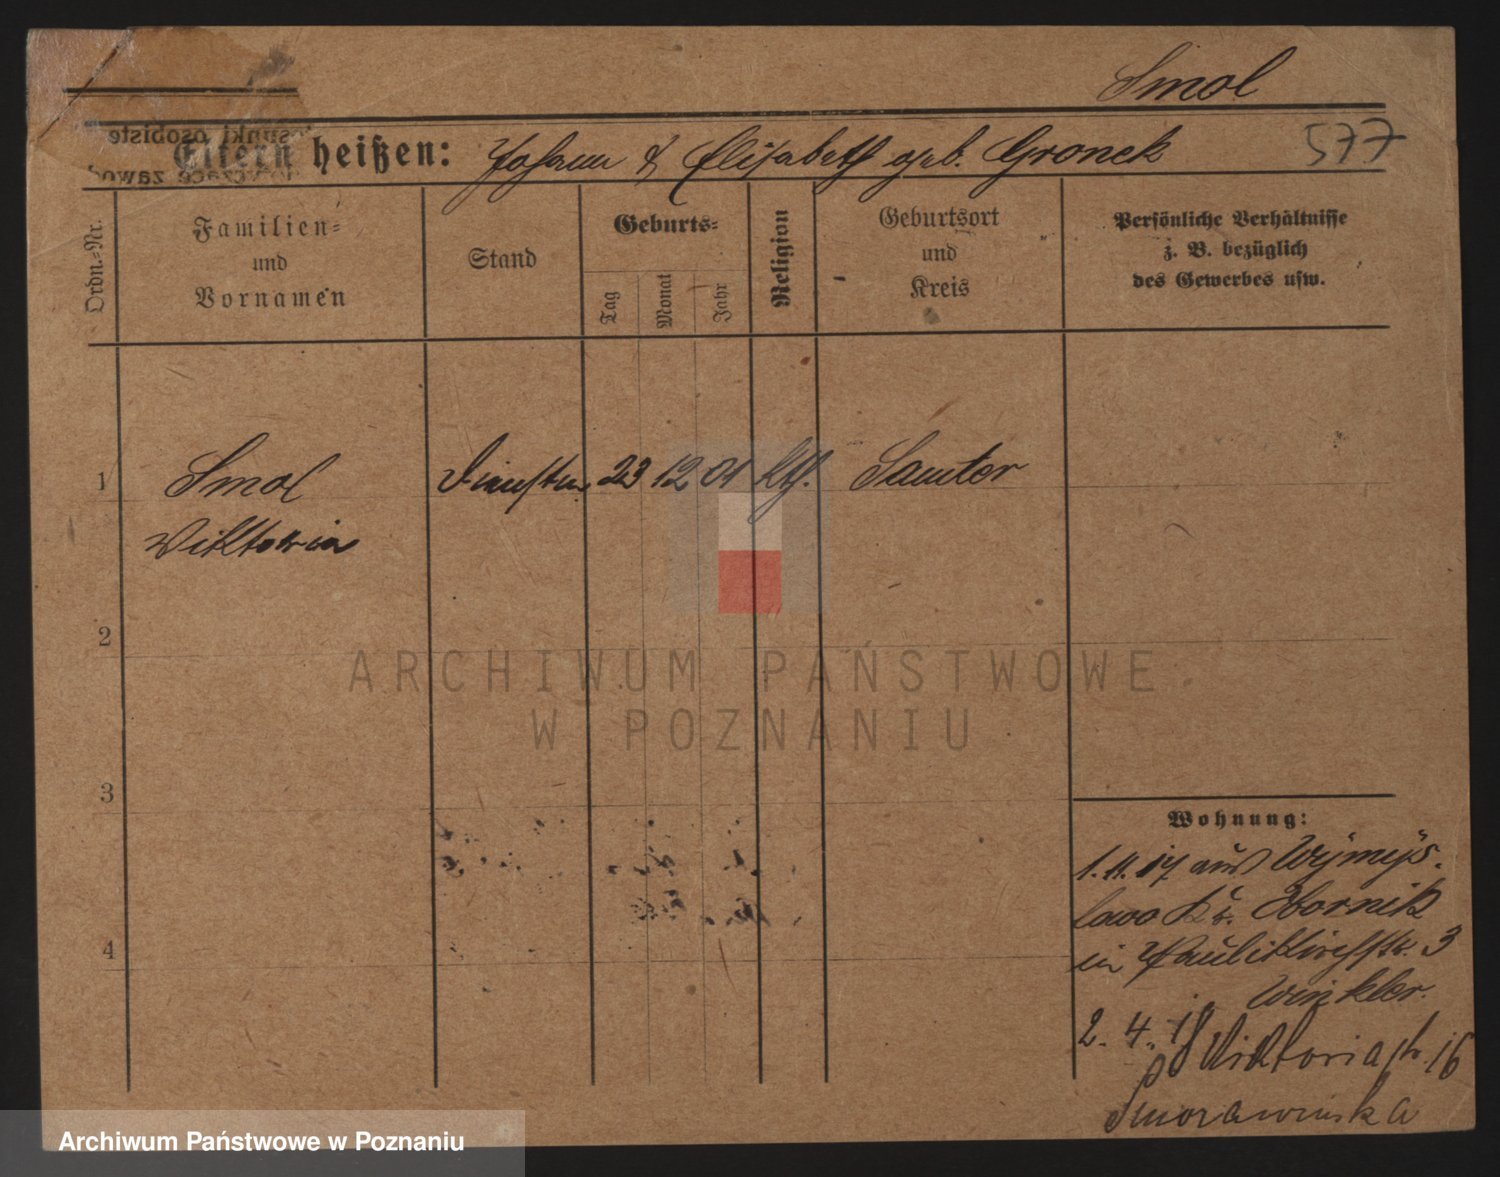 Smol
577
Eltern heißen: Johann & Elisabeth geb. Gronek
Ordn.-Nr.
Familien-
und
Vornamen
Stand
Geburts-
Tag
Monat
Jahr
Religion
Geburtsort
und
Kreis
Persönliche Verhältnisse
z. B. bezüglich
des Gewerbes usw.
1
Smol
Viktoria
23 12 01 kth. Samter
2
3
4
Wohnung:
1.11.17 aus Wymys-
lowo Kr. Obornik
in Paulikirchstr. 3
Winkler.
2. 4. 18 Viktoriastr. 16
Smorawinska
ARCHIWUM PAŃSTWOWE
W POZNANIU
Archiwum Państwowe w Poznaniu